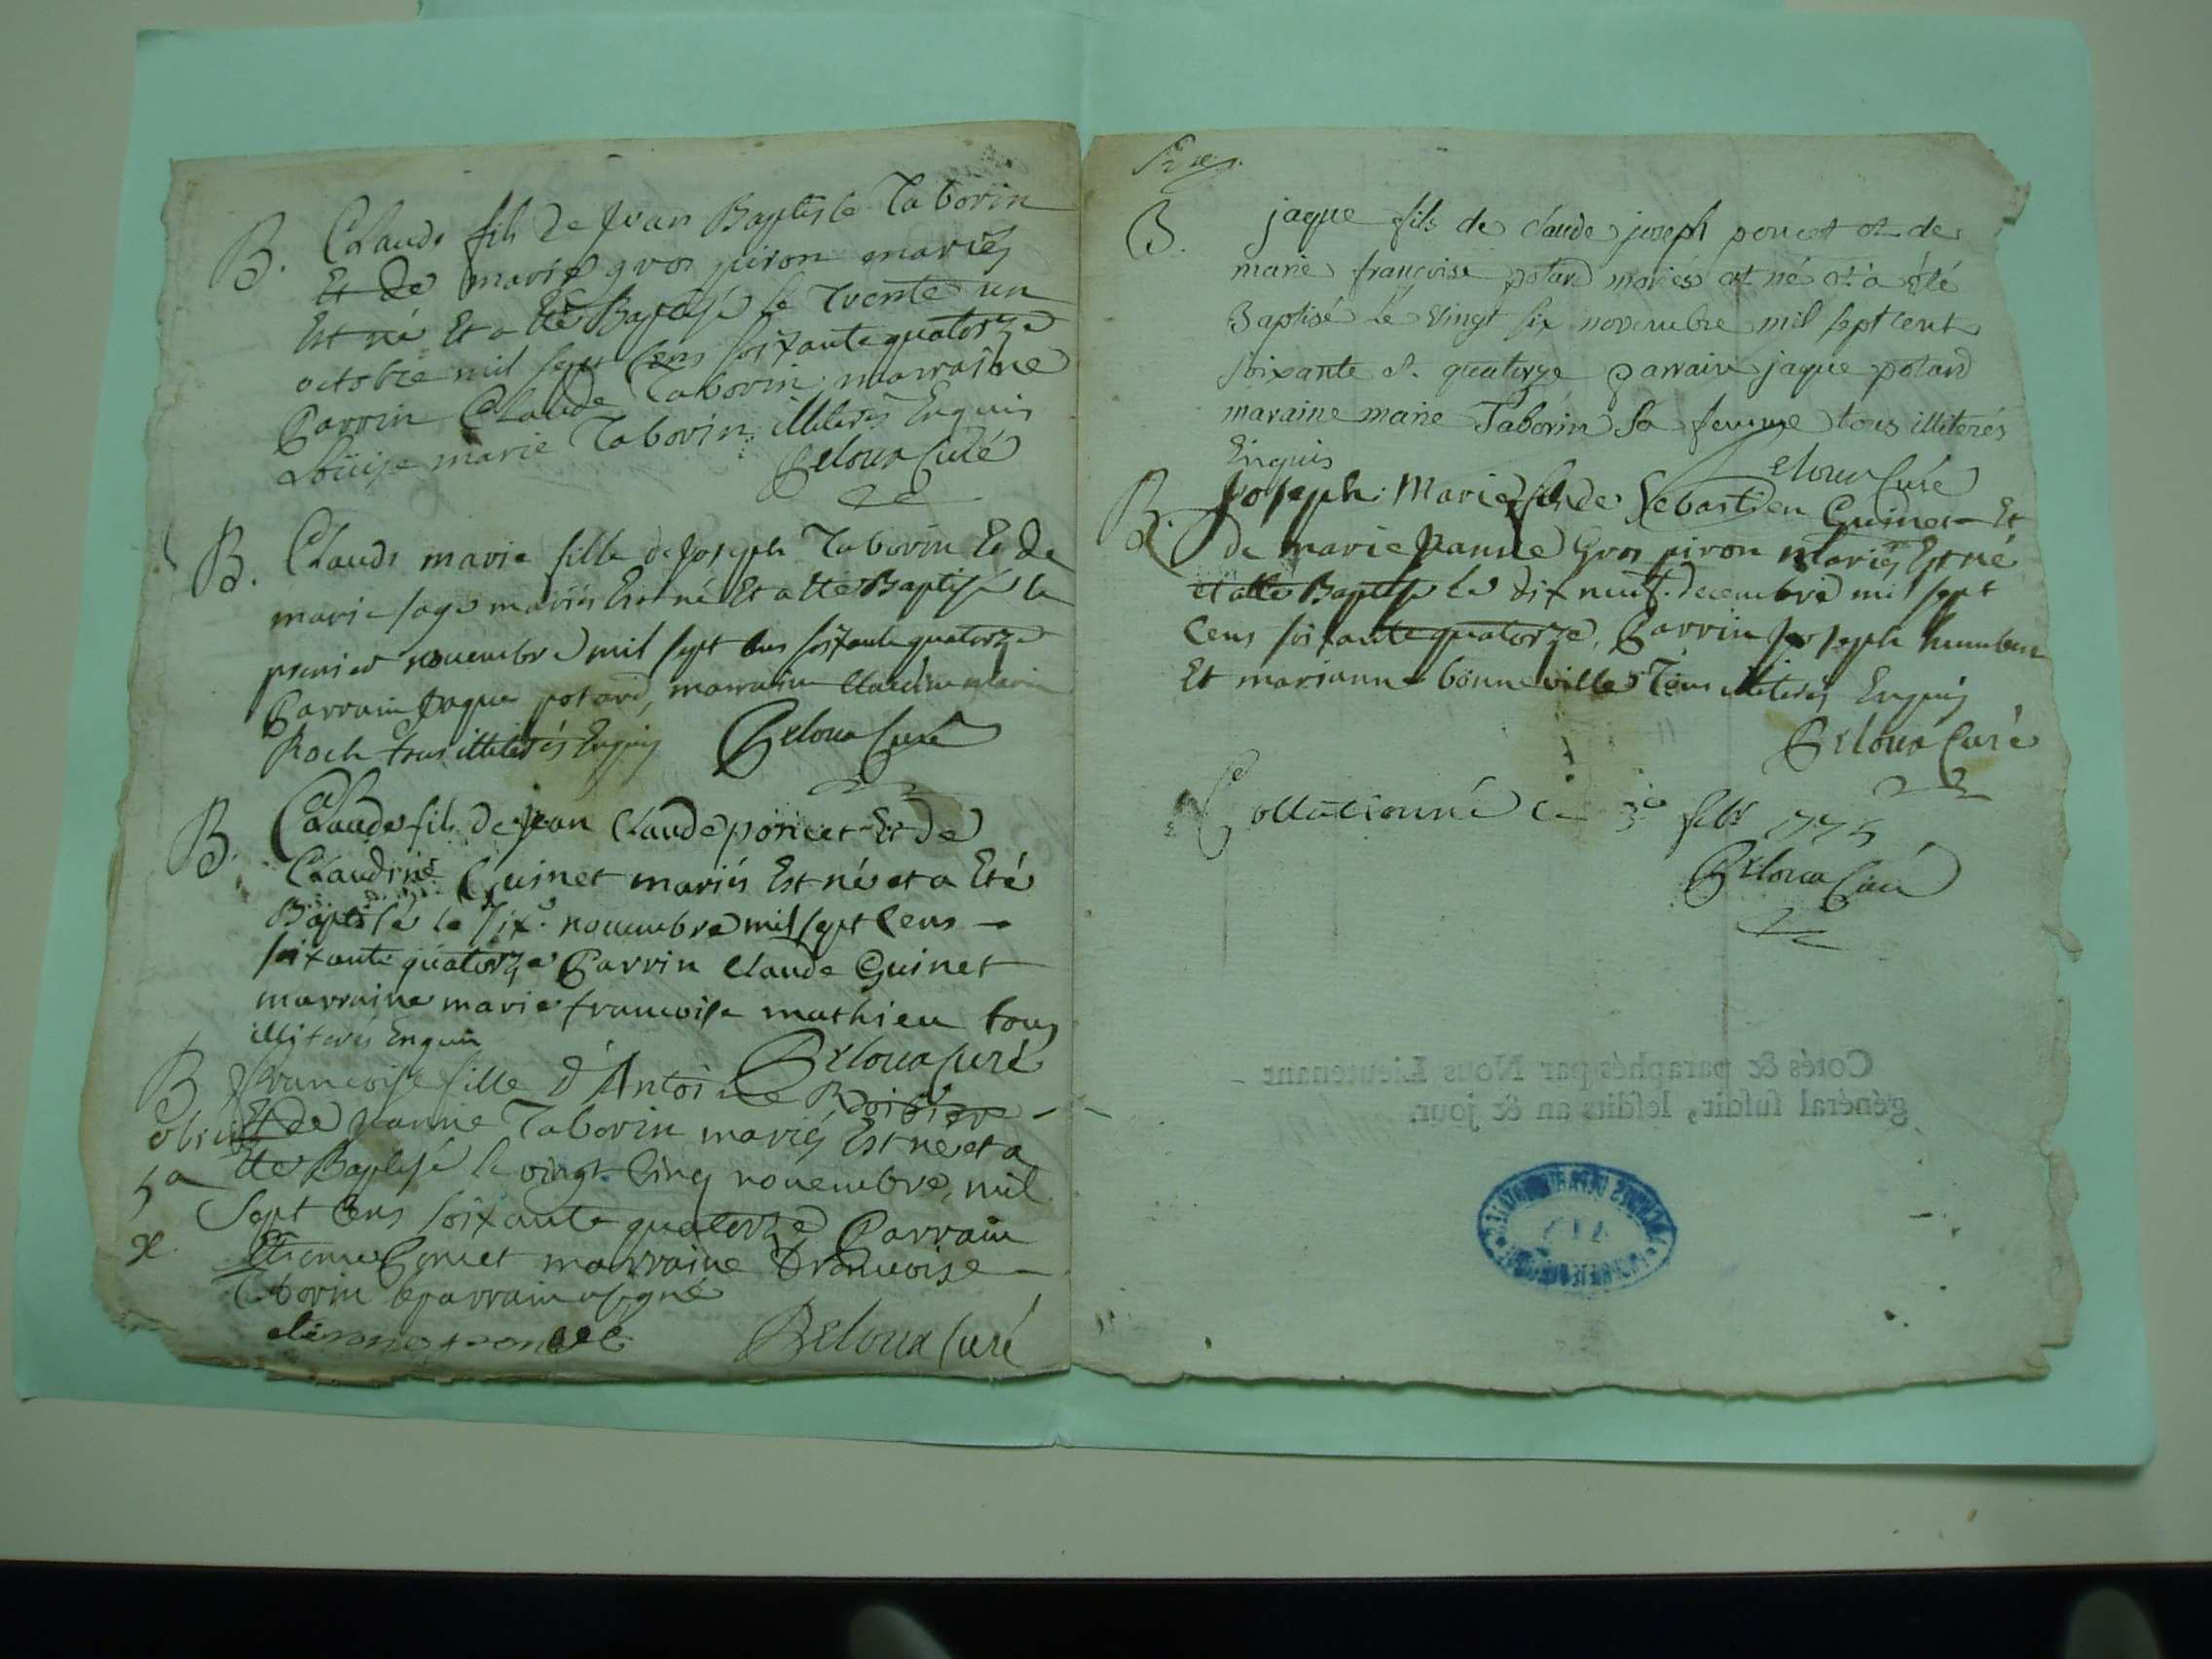 B. Claude fils de Jean Baptiste Taborin
Et de marie gros piron mariés
Est né Et a été Baptisé le Trente un
octobre mil sept Cens soixante quatorze
Parrin Claude Taborin marraine
Loüise marie Taborin illiterés Enquis
Beloux Curé
B. Claude marie fille de Joseph Taborin Et de
marie sage mariés Est né Et a été Baptisé le
premier novembre mil sept Cens soixante quatorze
Parrain Jaque potard, marraine Claudine marie
Roch tous illiterés Enquis Beloux Curé
B. Claude fils de Jean Claude poncet Et de
Claudine Guinet mariés Est né et a Eté
Baptisé le six novembre mil sept Cens
soixante quatorze Parrin Claude Guinet
marraine marie francoise mathieu tous
illiterés Enquis
Beloux Curé
B francoise fille d'Antoine
obiit Et de Jeanne Taborin mariés Est né et a
5a Eté Baptisé le vingt Cinq novembre, mil
x. Sept Cens soixante quatorze Parrain
Etienne Poncet marraine francoise
Taborin le parrain a signé
etienne poncet Beloux Curé
B. jaque fils de claude joseph poncet et de
marie françoise potard mariés est né et a été
Baptisé le vingt six novembre mil sept cent
soixante et quatorze parrain jaque potard
maraine marie Taborin sa femme tous illiterés
Enquis
Beloux Curé
B. Joseph Marie fils de Sebastien Guinet Et
de marie Jeanne Gros piron Mariés Est né
et a été Baptisé le dix neuf decembre mil sept
Cens soixante quatorze, Parrin Joseph humbert
Et marianne bonneville Tous illiterés Enquis
Beloux Curé
Collationné ce 3e febr 1775
Beloux Curé
Cotés & paraphés par Nous Lieutenant
général susdit, lesdits an & jour.